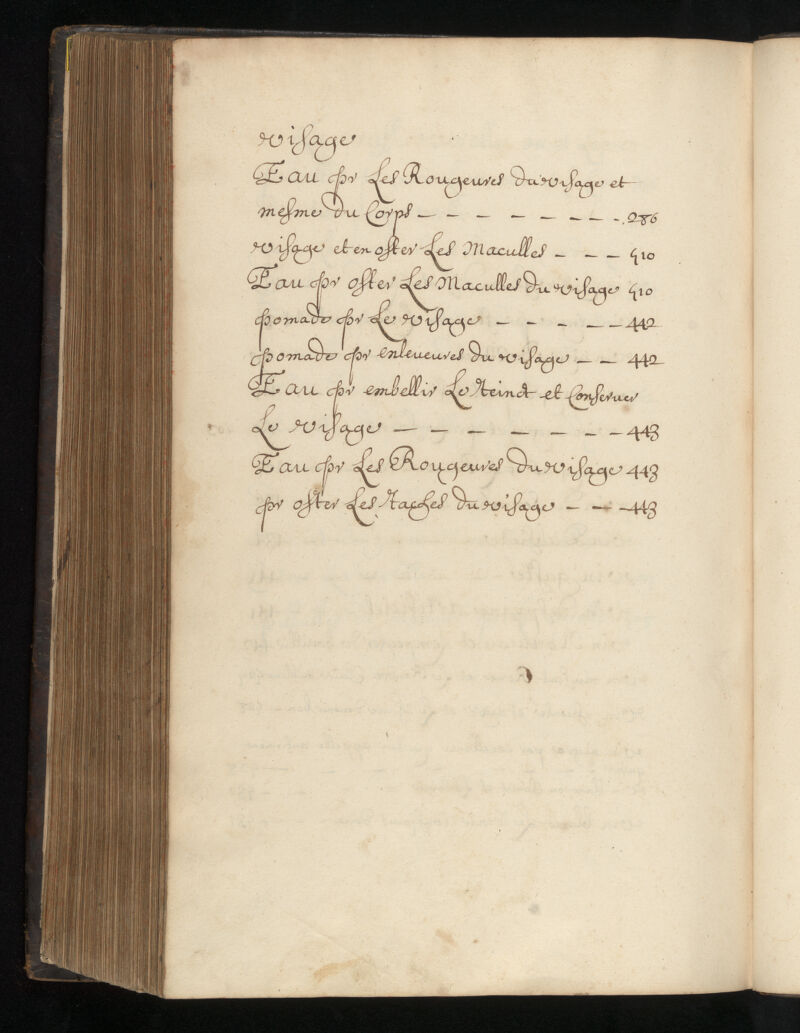 visage
Eau pr Les Rougeures du visage et
mesme du Corps — — — — — — — 286
visage et en oster Les Maculles — — — 510
Eau pr oster Les Maculles du visage 510
pomade pr Le visage — — — — — 442
pomade pr enleueures du visage — — 442
Eau pr embellir Le teinct et Conseruer
Le visage — — — — — — — 443
Eau pr Les Rougeures du visage 443
pr oster Les taches du visage — — — 443